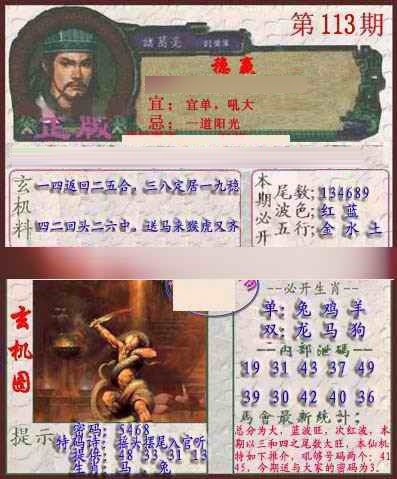 第113期
諸葛亮
穩贏
宜；宜单，吼大
忌；一道阳光
正版
玄机料
一四返回二五合。三八定居一九稳
四二回头二六中。送马来猴虎又齐
本期必开
尾数;134689
波色;红 蓝
五行;金水土
玄机图
--必开生肖--
单:兔鸡羊
双:龙马狗
--内部泄码--
19 31 43 37 49
39 30 42 40 36
馬會最新統計:
总分为大，蓝波旺，次红波，本期以三和四之尾数大旺，本仙机特如下推介，吼够号码两个: 4145，今期送与大家的密码为3.
提示
密码: 5468
特码诗: 摇头摆尾入官听
提得: 48 33 31 13
生肖: 马、兔